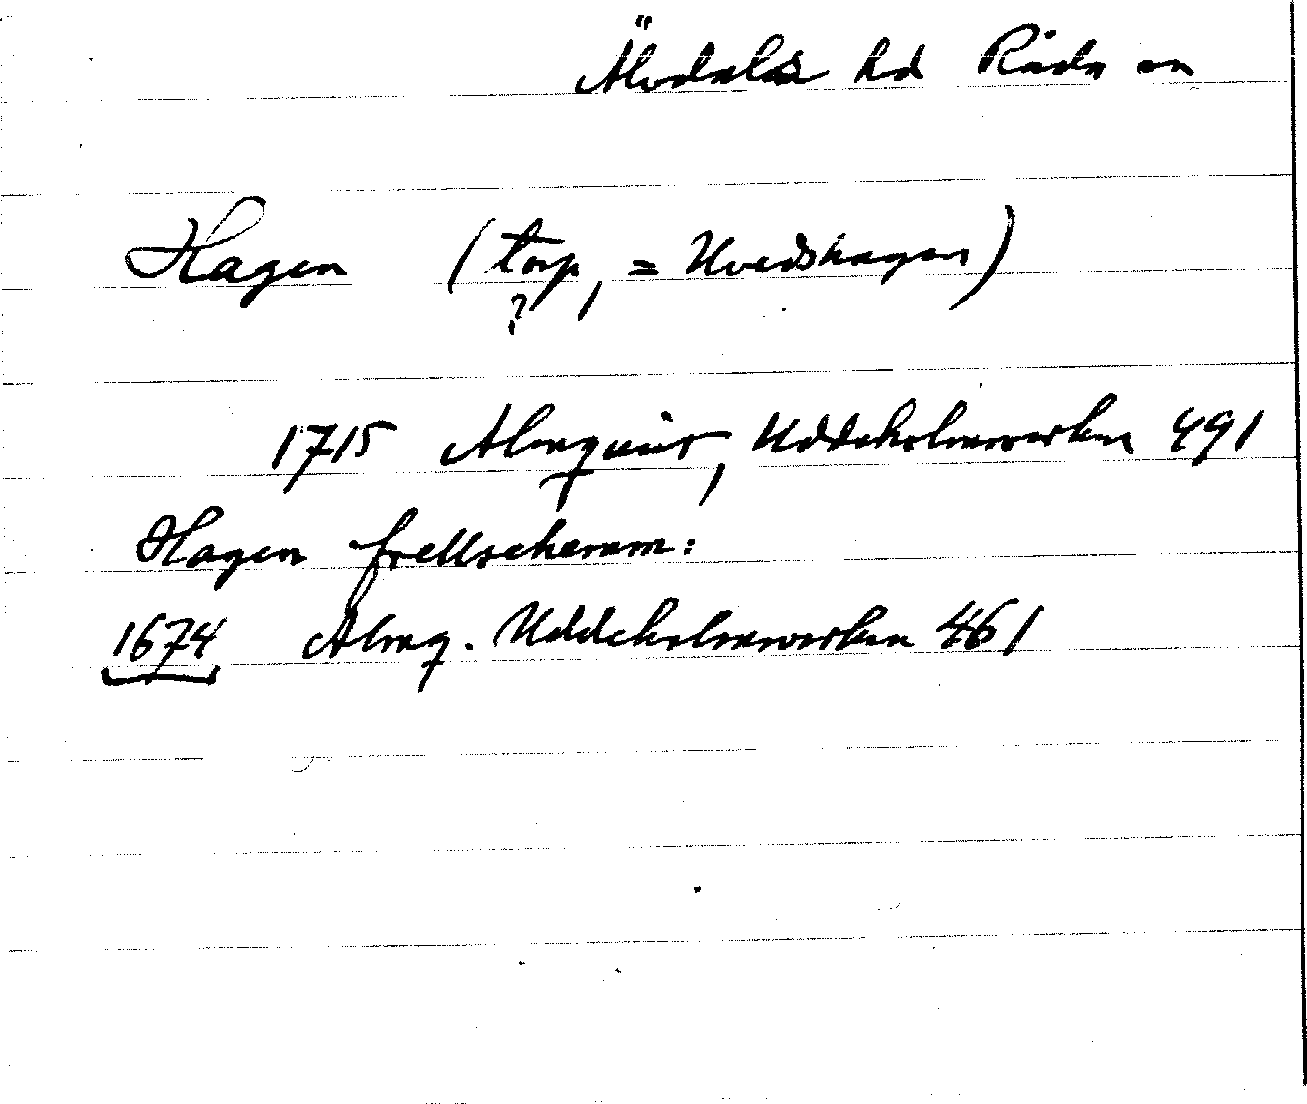 Älvdals hd Råda sn
Hagen (torp, = Uvedshagen)
?
1715 Almquist, Uddeholmsverken 491
Hagen frellsehemm:
1674 Almq. Uddeholmsverken 461